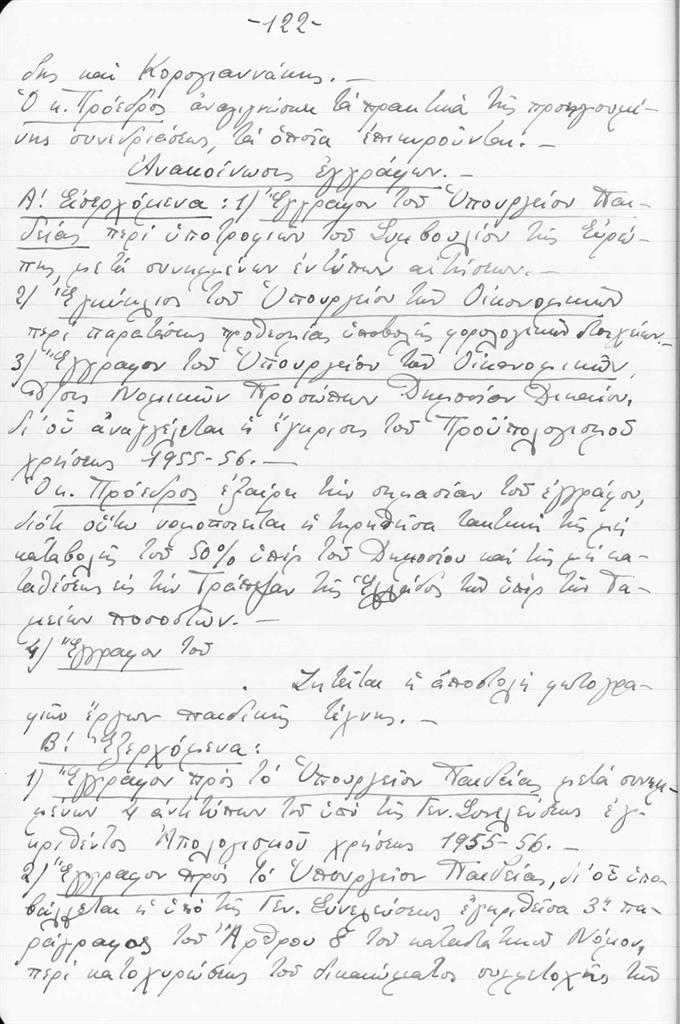 -122-
δης καὶ Κορογιαννάκης. —
Ὁ κ. Πρόεδρος ἀναγιγνώσκει τὰ πρακτικὰ τῆς προηγουμέ-
νης συνεδριάσεως, τὰ ὁποῖα ἐπικυροῦνται. —
Ἀνακοίνωσις ἐγγράφων. —
Α! Εἰσερχόμενα : 1) Ἔγγραφον τοῦ Ὑπουργείου Παι-
δείας περὶ ὑποτροφιῶν τοῦ Συμβουλίου τῆς Εὐρώ-
πης, μετὰ συνημμένων ἐντύπων αἰτήσεων. —
2) Ἐγκύκλιος τοῦ Ὑπουργείου τῶν Οἰκονομικῶν
περὶ παρατάσεως προθεσμίας ὑποβολῆς φορολογικῶν στοιχείων. —
3) Ἔγγραφον τοῦ Ὑπουργείου τῶν Οἰκονομικῶν,
Δ/σις Νομικῶν Προσώπων Δημοσίου Δικαίου,
δι' οὗ ἀναγγέλεται ἡ ἔγκρισις τοῦ Προϋπολογισμοῦ
χρήσεως 1955-56. —
Ὁ κ. Πρόεδρος ἐξαίρει τὴν σημασίαν τοῦ ἐγγράφου,
διότι οὕτω νομιμοποιεῖται ἡ τηρηθεῖσα τακτικὴ τῆς μὴ
καταβολῆς τοῦ 50% ὑπὲρ τοῦ Δημοσίου καὶ τῆς μὴ κα-
ταθέσεως εἰς τὴν Τράπεζαν τῆς Ἑλλάδος τῶν ὑπὲρ τῶν Τα-
μείων ποσοστῶν. —
4) Ἔγγραφον τοῦ
Ζητεῖται ἡ ἀποστολὴ φωτογρα-
φιῶν ἔργων παιδικῆς τέχνης. —
Β! Ἐξερχόμενα :
1) Ἔγγραφον πρὸς τὸ Ὑπουργεῖον Παιδείας μετὰ συνημ-
μένων 4 ἀντιτύπων τοῦ ὑπὸ τῆς Γεν. Συνελεύσεως ἐγ-
κριθέντος Ἀπολογισμοῦ χρήσεως 1955-56. —
2) Ἔγγραφον πρὸς τὸ Ὑπουργεῖον Παιδείας, δι' οὗ ὑπο-
βάλλεται ἡ ὑπὸ τῆς Γεν. Συνελεύσεως ἐγκριθεῖσα 3η πα-
ράγραφος τοῦ Ἄρθρου 8 τοῦ καταστατικοῦ Νόμου,
περὶ κατοχυρώσεως τοῦ δικαιώματος συμμετοχῆς τῶν